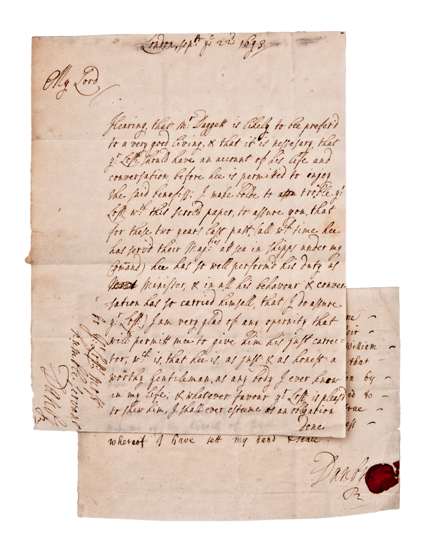 London, sepr ye 22d 1693
My Lord
Hearing that Mr Daggett is likely to bee preferd
to a very good living, & that it is nessesary that
yr Lopp should have an account of his life and
conversation before hee is permitted to enjoy
the said benefitt, I make bold to trouble yr
Lopp wth this paper, to assure you, that
for these two years last past, (all wch time hee
has servd their Majties at sea in shipps under my
comand) hee has so well performd his duty as
Minister, & in all his behavour & conver-
sation has so carried himself, that I do assure
yr Lopp I am very glad of any opernity that
will permitt mee to give him his just carrec-
ter, wch is, that hee is, as just & as honest a
worthy gentleman, as any body I ever knew
in my life, & whatever favour yr Lopp is pleasd
to shew him, I shall ever esteeme as an obligation
done
to yr Lopps most
humble servant
Danby
William
that
in by
to
true
whereof I have sett my hand & seale
Danby